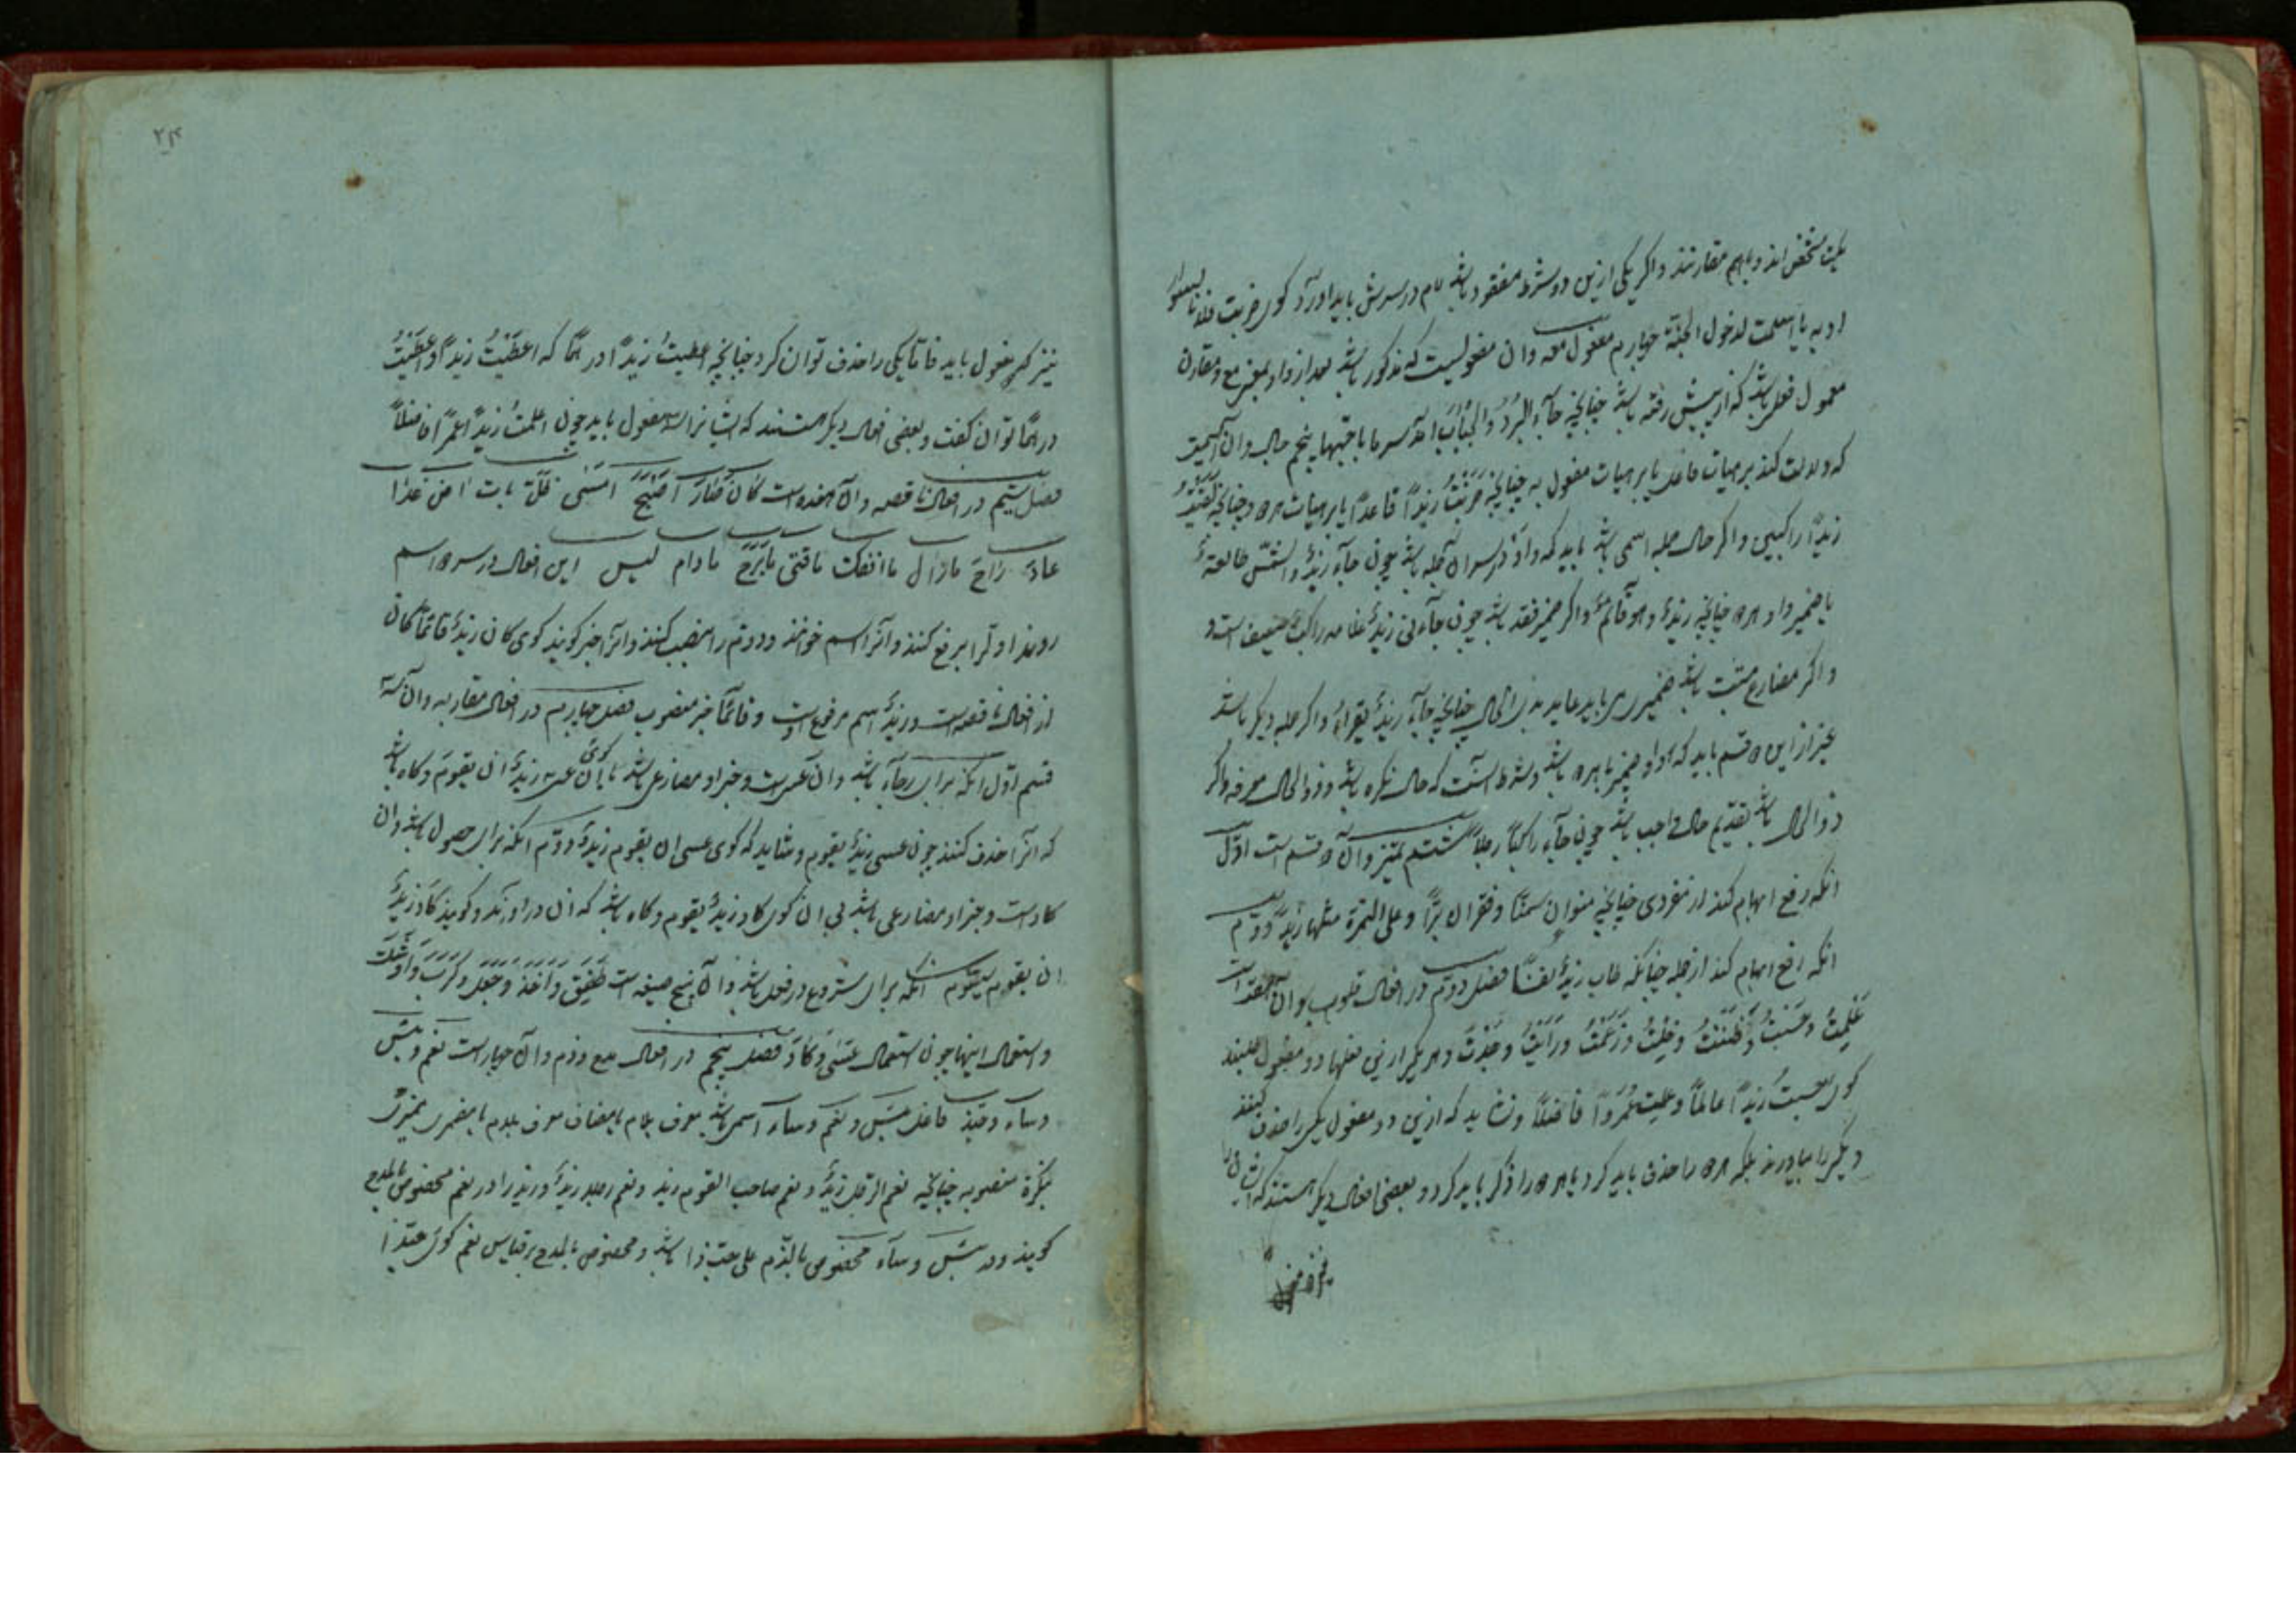 یک شخص‌اند و باهم مقارنند و اگر یکی ازین دو شرط مفقود باشد لام در سرش باید آورد گوی ضربت فلانا لسوء
ادبه یا اسلمت لدخول الجنة چهارم مفعول معه و آن مفعولیست که مذکور باشد بعد از واو بمعنی مع و مقارن
معمول فعل باشد که از پیش رفته باشد چنانچه جآء البرد والجباب آمد سرما با جبها پنجم حال و آن اسمیست
که دلالت کند بر هیات فاعل یا بر هیات مفعول به چنانچه ضربت زیداً قاعداً یا بر هیات هر دو چنانچه لقیت
زیداً راکبین و اگر حال جمله اسمی باشد باید که واو در سر آن جمله باشد چون جآء زیدٌ والشمس طالعة
یا ضمیر و او هر دو چنانچه زیدٌ وهو قائم و اگر ضمیر فقد باشد چون جآءنی زیدٌ غلامه راکب ضعیف است و
و اگر مضارع مثبت باشد ضمیری باید عاید بذی الحال چنانچه جآء زیدٌ یقراء و اگر جمله دیگر باشد
غیر از این دو قسم باید که با واو و ضمیر یا هر دو باشد و شرط آنست که حال نکره باشد و ذوالحال معرفه و اگر
ذوالحال باشد تقدیم حال واجب باشد چون جآء راکباً رجلاً ششم تمییز و آن دو قسم است اوّل
آنکه رفع ابهام کند از مفردی چنانچه منوان سمنًا و قفیزان برّاً و علی التمرة مثلها زبداً و دوم
آنکه رفع ابهام کند از جمله چنانکه طاب زیدٌ نفسًا فصل دوّم در افعال قلوب و آن هفت است
علمتُ وحسبتُ وظننتُ وخلتُ وزعمتُ ورأیتُ ووجدتُ و هر یکی ازین فعلها دو مفعول طلبند
گوی حسبت زیداً عالماً و علمت عمرواً فاضلاً و نشاید که ازین دو مفعول یکی را حذف کنند
و دیگر را بیاورند بلکه هر دو را حذف باید کرد یا هر دو را ذکر باید کرد و بعضی افعال دیگر هستند که ایشان را
۲۴
نیز مفعول باید فامّا یکی را حذف توان کرد چنانچه اعطیتُ زیداً درهمًا که اعطیتُ زیداً و اعطیتُ
درهمًا توان گفت و بعضی افعال دیگر هستند که ایشانرا سه مفعول باید چون اعلمتُ زیداً عمراً فاضلاً
فصل سیّم در افعال ناقصه و آن هفده است کان صار اصبح امسی ظلّ بات اض غدا
عاد راح مازال ماانفک مافتی مابرح مادام لیس این افعال در سر دو اسم
روند اوّل را برفع کنند و آنرا اسم خوانند و دوّم را نصب کنند و آنرا خبر گویند گوی کان زیدٌ قائماً کان
از افعال ناقصه است و زیدٌ اسم مرفوع اوست و قائماً خبر منصوب فصل چهارم در افعال مقاربه و آن سه
قسم اوّل آنکه برای رجآء باشد و آن عسی است و خبر او مضارعی باشد با ان گوی عسی زیدٌ ان یقوم و گاه باشد
که آنرا حذف کنند چون عسی زیدٌ یقوم و شاید که گوی عسی ان یقوم زیدٌ و دوّم آنکه برای حصول باشد و آن
کاد است و خبر او مضارعی باشد بی ان گوی کاد زیدٌ یقوم و گاه باشد که ان در آورند و گویند کاد زیدٌ
ان یقوم سیّوم آنکه برای شروع در فعل باشد و آن پنج صیغه است طفق واخذ وجعل وکرب واوشک
و استعمال اینها چون استعمال عسی و کاد فصل پنجم در افعال مدح و ذم و آن چهار است نعم و بئس
و سآء و حبّذا فاعل بئس و نعم و سآء اسمی باشد معرف بلام یا مضاف معرف بلام یا مضمری ممیز
بنکرة منصوبه چنانچه نعم الرجل زیدٌ و نعم صاحب القوم زید و نعم رجلا زیدٌ و زید را در نعم مخصوص بالمدح
گویند و در بئس و سآء مخصوص بالذّم علی حبّذا باشد و مخصوص بالمدح بر قیاس نعم گوی حبّذا